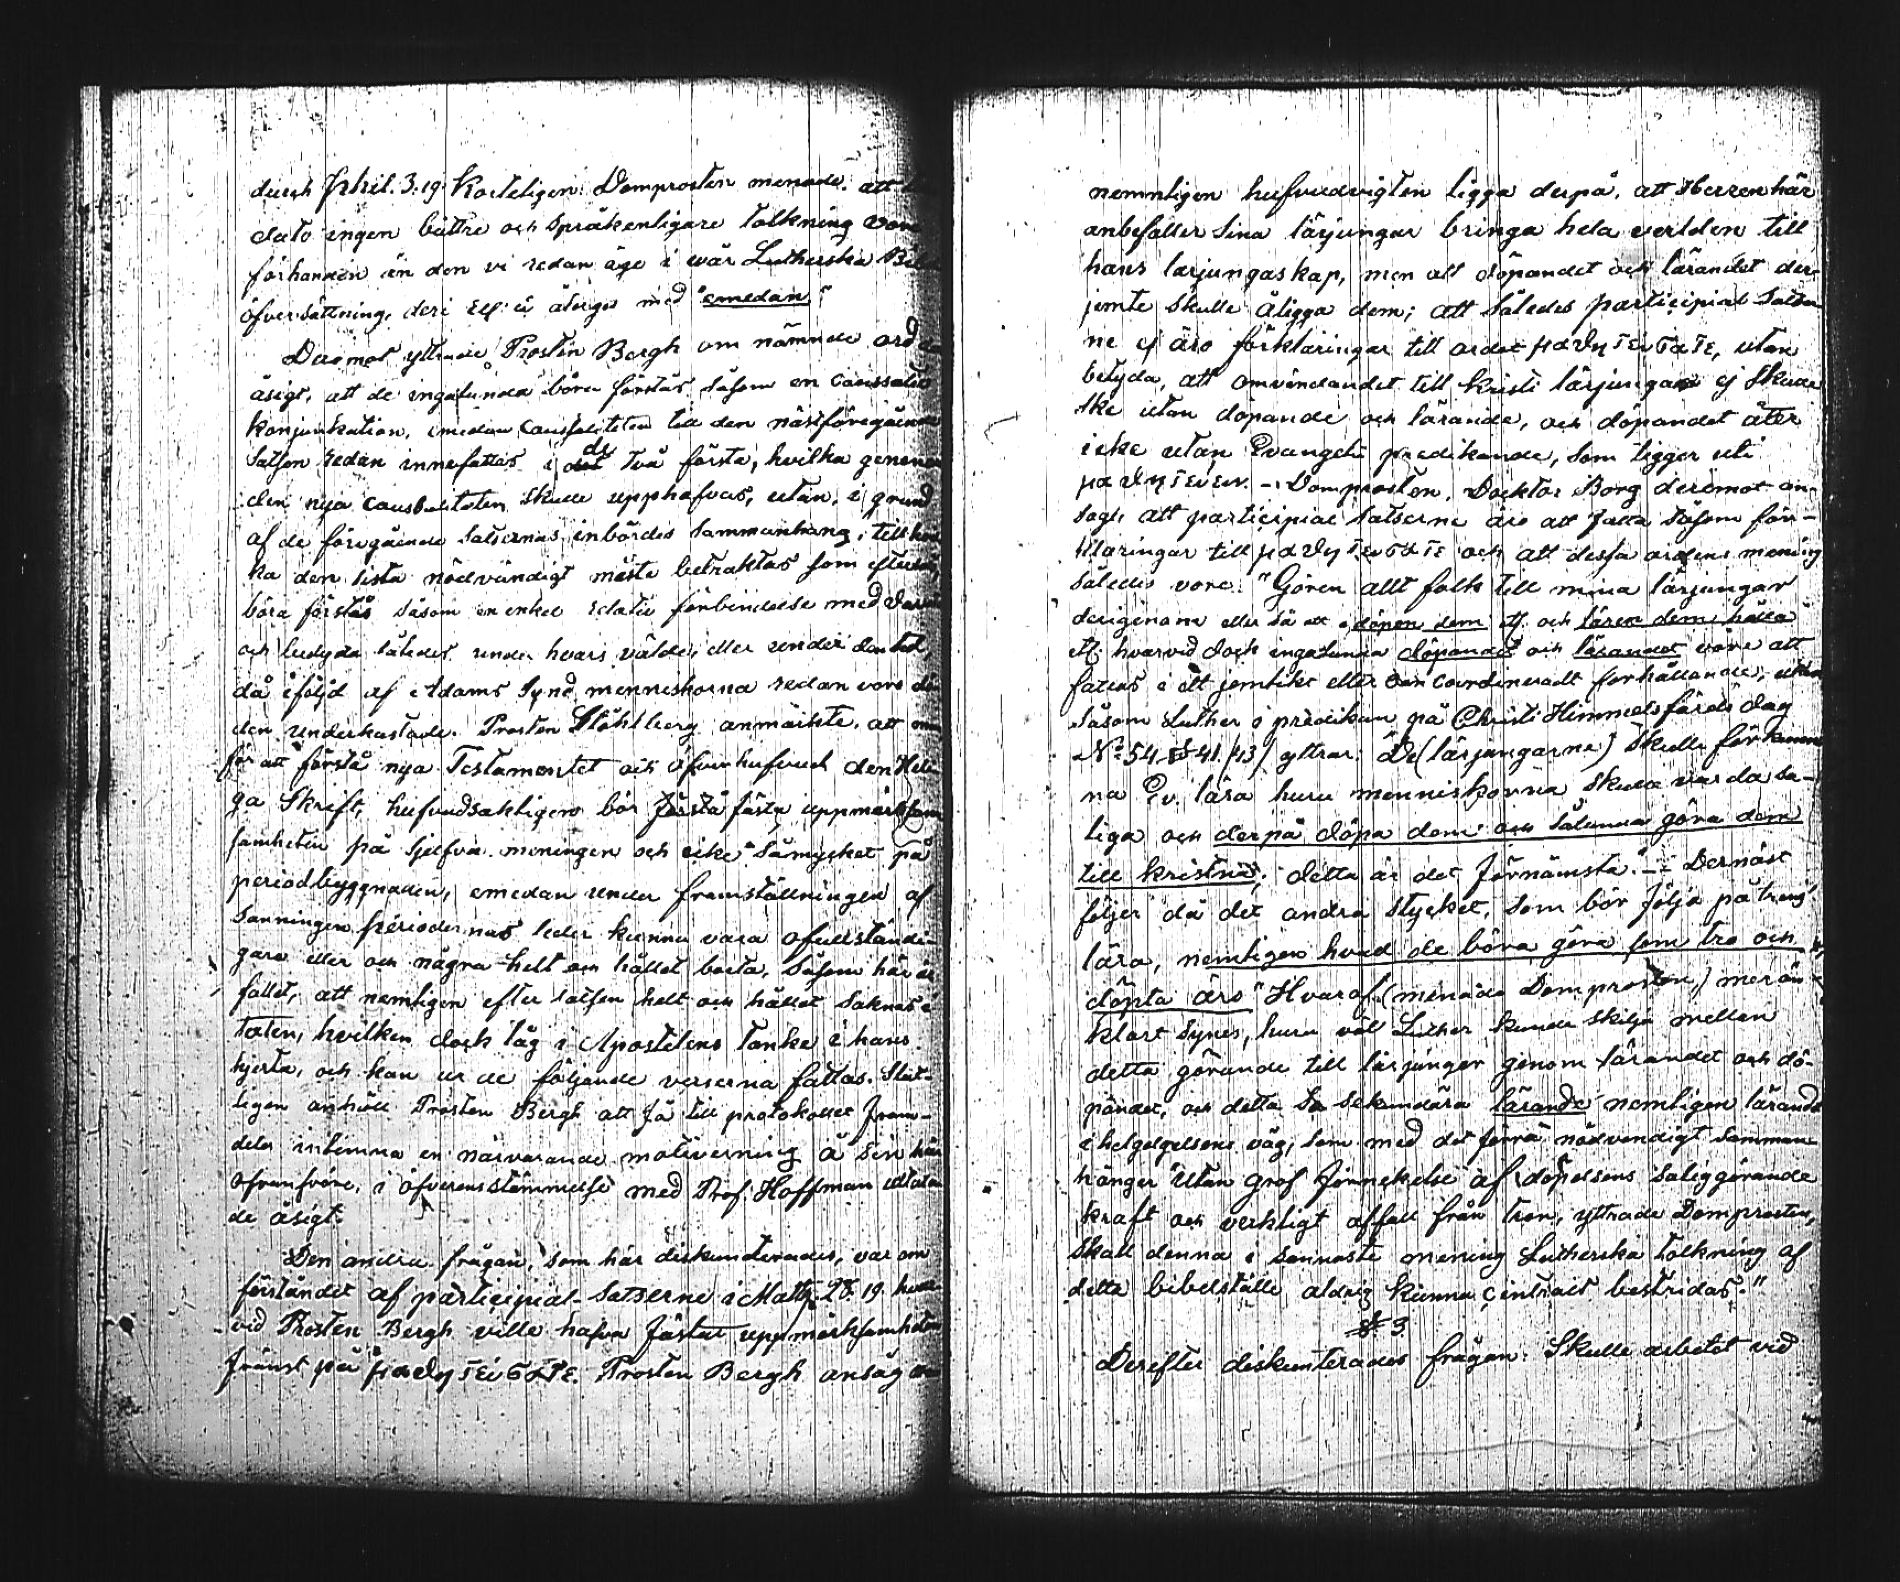 durch Phil. 3:19. Korteligen: Domprosten menade, att
dato ingen bättre och språkenligare tolkning vore
förhanden än den vi redan äge i wår Lutherska Bibel
öfversättning, deri ἐφ' ᾧ återges med "emedan"
Deremot yttrade Prosten Bergh om nämnde ord
åsigt, att de ingalunda böra förstås såsom en caussativ
konjunktion, emedan caussaliteten till den nästföregående
satsen redan innefattas i de två första, hvilka genom
den nya caussaliteten skulle upphäfvas, utan, i grund
af de föregående satsernas inbördes sammanhang, till hvil
ka den sista nödvändigt måste betraktas som eftersats,
böra förstås såsom en enkel relativ förbindelse med
och betyda således under hvars välde, eller under den tid,
då i följd af Adams synd menniskorna redan voro
den underkastade. Prosten Ståhlberg anmärkte, att om
för att förstå nya Testamentet och öfverhufvud den Heli
ga Skrift, hufvudsakligen bör fästa uppmärksam
samheten på sjelfva meningen och icke såmycket på
periodbyggnaden, emedan under framställningen af
sanningen periodernas leder kunna vara ofullständi-
gare eller och några helt och hållet borta, såsom här är
fallet, att nemligen efter satsen helt och hållet saknas i
texten, hvilken dock låg i Apostelens tanke i hans
hjerta, och kan ur de följande verserna fattas. Slut-
ligen anhöll Prosten Bergh att få till protokollet fram-
deles inlemna en närvarande motivering å sin här
ofvanföre, i öfverensstämmelse med Prof. Hoffman uttala
de åsigt.
Den andra frågan, som här diskuterades, var om
förståndet af participial-satserne i Matth. 28. 19. hvar
vid Prosten Bergh ville hafva fästat uppmärksamheten
främst på μαθητεύσατε. Prosten Bergh ansåg
nemnligen hufvudvigten ligga derpå, att Herren här
anbefaller sina lärjungar bringa hela verlden till
hans lärjungaskap, men att döpandet och lärandet der-
jemte skulle åligga dem; att således participial-satser
ne ej äro förklaringar till ordet μαθητεύσατε, utan
betyda, att omvändandet till Kristi lärjungar ej skulle
ske utan döpande och lärande, och döpandet åter
icke utan Evangelii predikande, som ligger uti
μαθητεύειν. - Domprosten, Docktor Borg deremot an-
såg, att participial satserne äro att fatta såsom för-
klaringar till μαθητεύσατε och att dessa ordens mening
således vore: "Gören allt folk till mina lärjungar
derigenom eller så att i döpen dem etc. och lären dem hålla
etc. hvarvid dock ingalunda döpandet och lärandet vore att
fattas i ett jemlikt eller coordineradt förhållande, utan
såsom Luther i predikan på Christi Himmelsfärds dag
N:o 54 § 41. (43) yttrar: "De (lärjungarne) skulle förkunna
na Ev. lära huru menniskorna skulle varda sa-
liga och derpå döpa dem och sålunda göra dem
till kristna; detta är det förnämsta." - Dernäst
följer då det andra stycket, som bör följa på trons
lära, nemligen hvad de böra göra som tro och
döpta äro" Hvaraf (menade Domprosten,) mer än
klart synes, huru väl Luther kunde skilja mellan
detta görande till lärjungar genom lärandet och dö-
pandet, och detta sekundära lärande nemligen lärande
i helgelsens väg, som med det förra nödvendigt samman-
hänger "Utan grof förnekelse af döpelsens saliggörande
kraft och verkligt affall från tron, yttrade Domprosten,
skall denna i sannaste mening Lutherska tolkning af
detta bibelställe aldrig kunna bestridas."
§ 3.
Derefter diskuterades frågan: Skulle arbetet vid